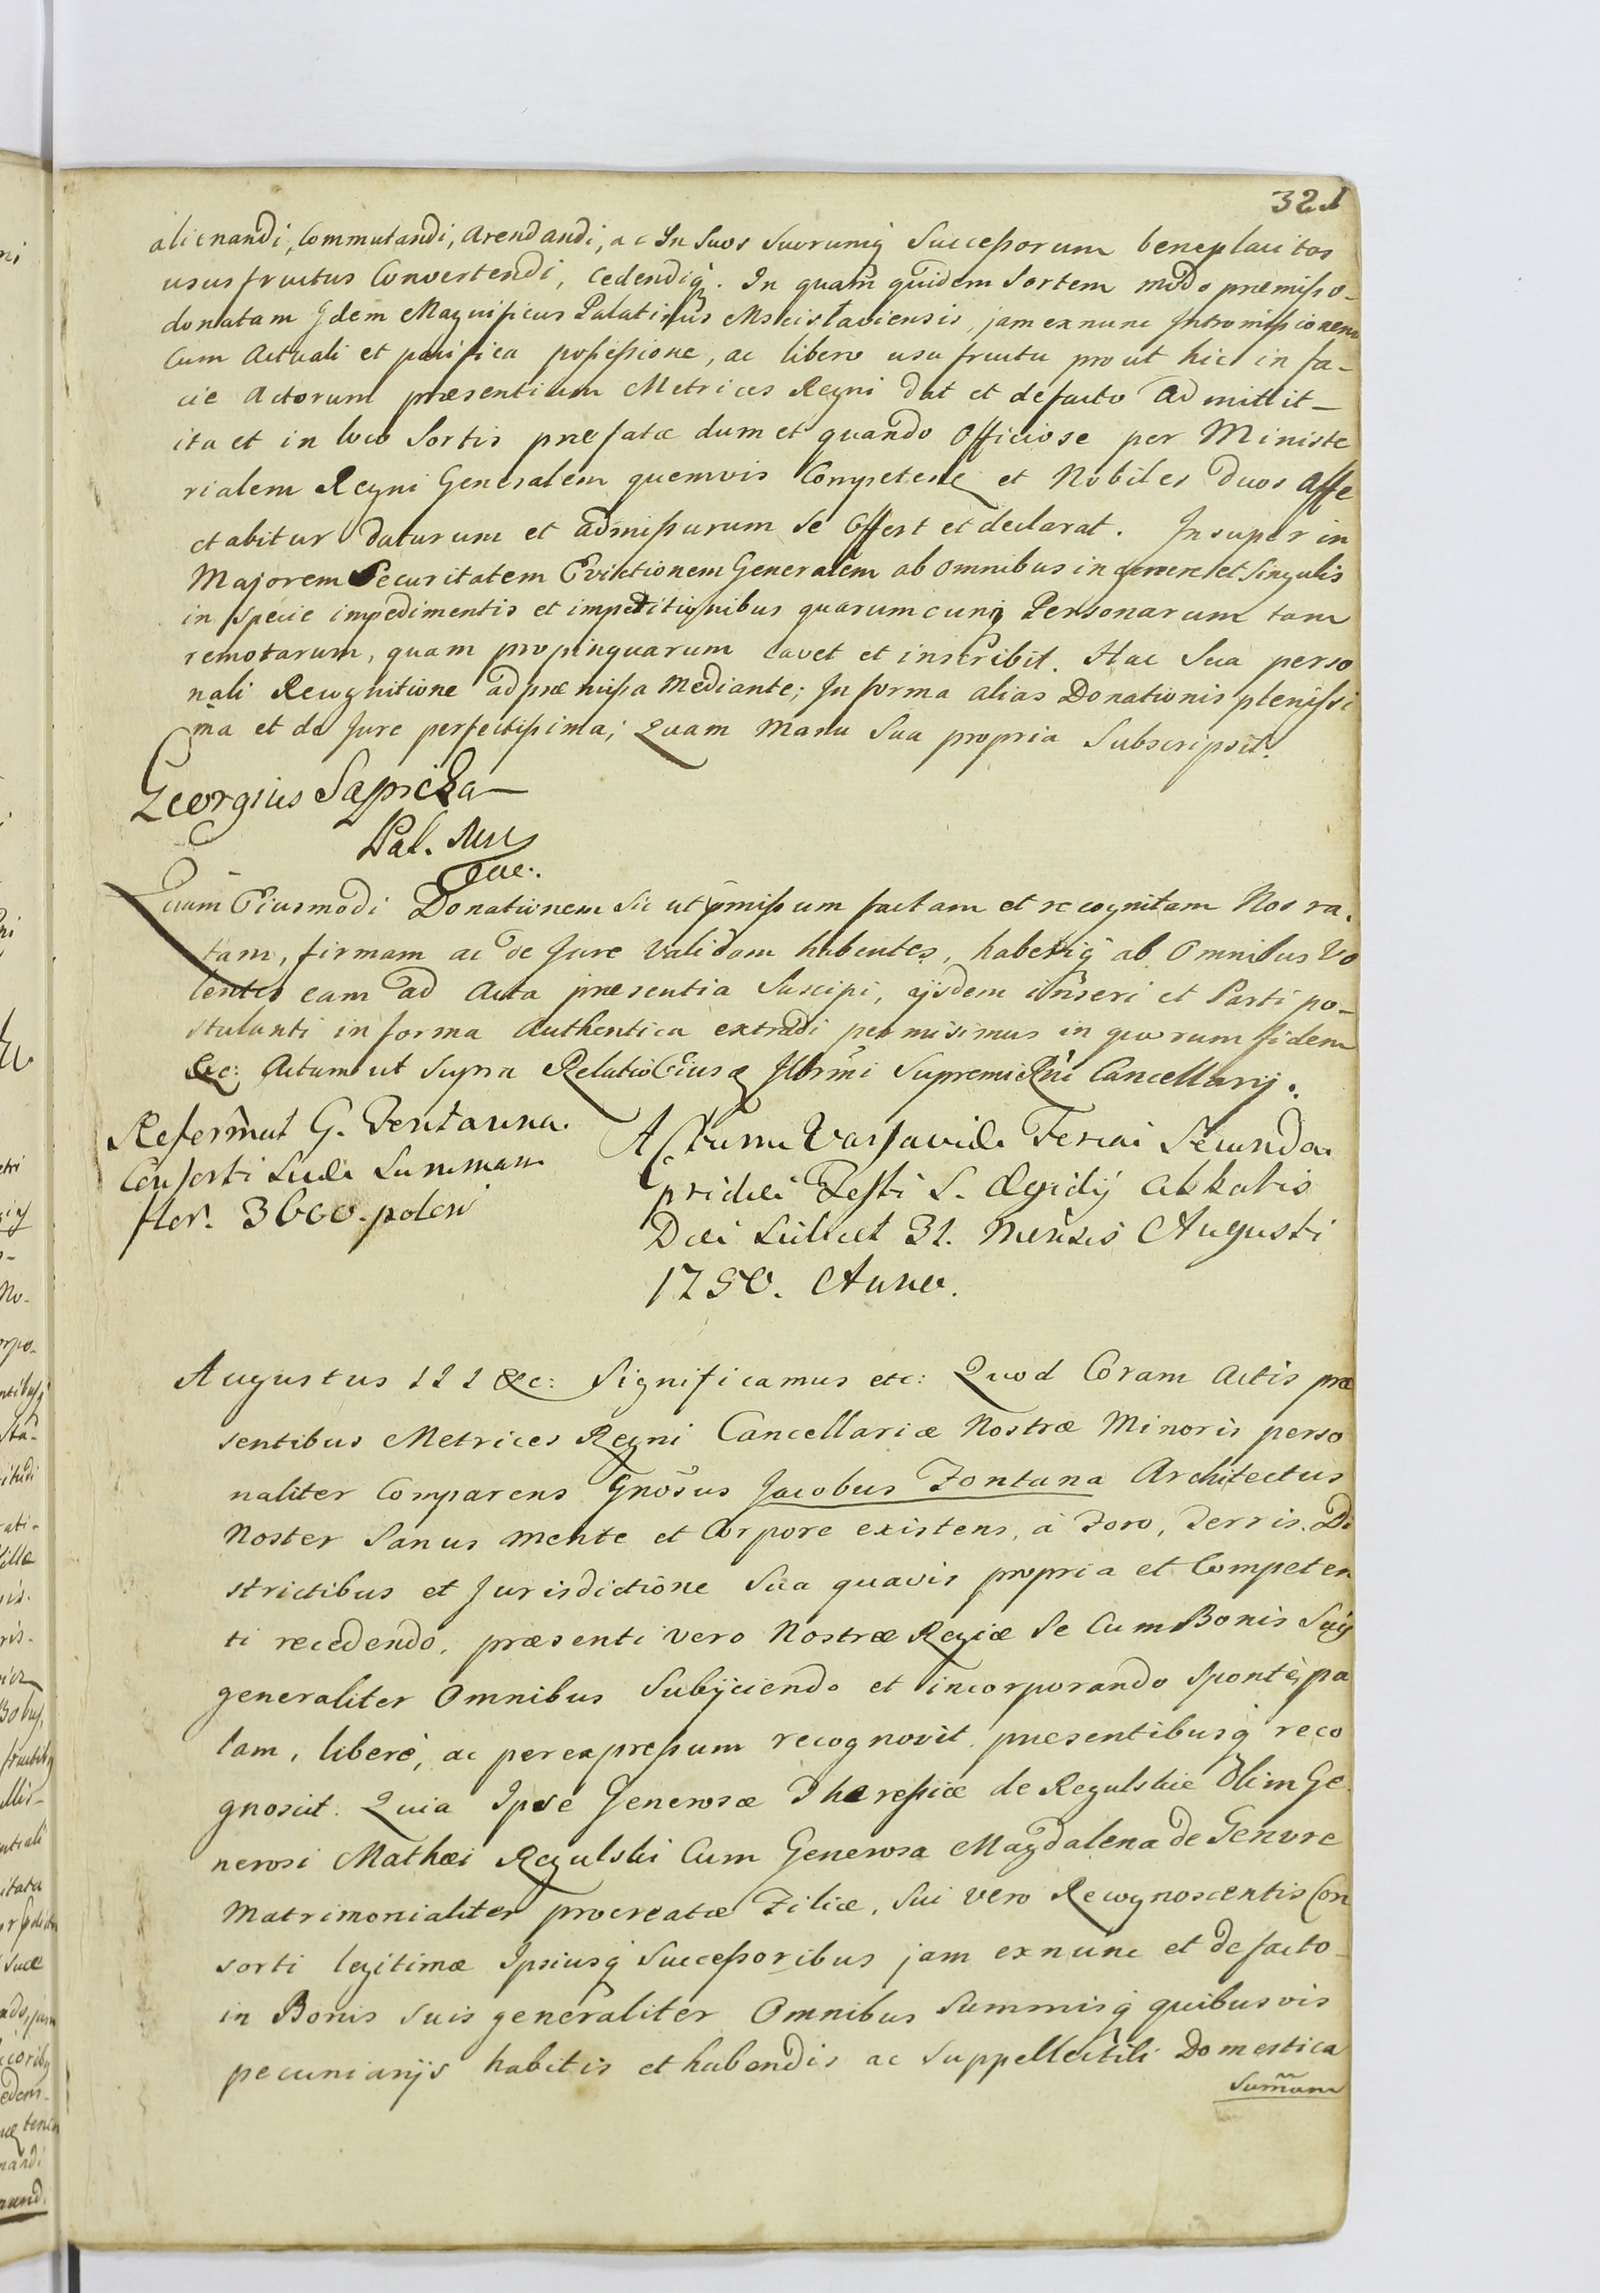 321
alienandi, Commutandi, Arendandi, ac In Suos Suorumq Successorum beneplacitos
ususfructus Convertendi, Cedendiq. In quam quidem Sortem modo præmisso-
donatam Idem Magnificus Palatinus Mscislaviensis, jam exnunc Intromissionem
Cum Actuali et pacifica possessione, ac libero usu fructu prout hic in fa-
cie Actorum præsentium Metrices Regni dat et defacto Admittit-
ita et in loco Sortis præfatæ dum et quando Officiose per Ministe
rialem Regni Generalem quemvis Competente et Nobiles Duos Affe
ctabitur daturum et admissurum Se Offert et declarat. Insuper in
Majorem Securitatem Evictionem Generalem ab omnibus in genere et Singulis
in Specie impedimentis et impetitionibus quarumcunq Personarum tam
remotarum, quam propinquarum cavet et inscribit. Hac Sua perso
nali Recognitione ad præmissa Mediante; In forma alias Donationis plenissi
ma et de Jure perfectissima; Quam Manu Sua propria Subscripsit.
Georgius Sapieha
Pal. Msc
Quam Eiusmodi Donationem Sic ut pmissum factam et recognitam Nos ra-
tam, firmam ac de Jure Validam habentes, haberiq ab Omnibus Vo
lentes eam ad Acta præsentia Suscipi, ijsdem inseri et Parti po-
stulanti in forma Authentica extradi permisimus in quorum fidem
&c: Actum ut Supra Relatio Eiusq Illrmi Supremi Rni Cancellarij.
Reformat G. Fontanna
Consorti Suæ Summam
flor. 3600. polon
Actum Varsaviæ Feria Secunda
pridie Festi S. Ægidij Abbatis
Die Scilicet 31. Mensis Augusti
1750. Anno.
Augustus III &c: Significamus etc: Quod Coram Actis præ
sentibus Metrices Regni Cancellariæ Nostræ Minoris perso
naliter Comparens Gnosus Jacobus Fontana Architectus
Noster Sanus Mente et Corpore existens, à Foro, Terris. Di
strictibus et Jurisdictione Sua quavis propria et Competen
ti recedendo, præsenti vero Nostræ Regiæ Se Cum Bonis Suis
generaliter Omnibus Subijciendo et incorporando Spontè, pa
lam, liberè, ac per expressum recognovit præsentibusq reco
gnoscit. Quia Ipse Generosæ Theressiæ de Regulskie Olim Ge
nerosi Mathæi Regulski Cum Generosa Magdalena de Genvre
Matrimonialiter procreatæ Filiæ, Sui vero Recognoscentis Con
sorti legitimæ Ipsiusq Successoribus jam exnunc et defacto
in Bonis Suis generaliter Omnibus Summisq quibusvis
pecuniarijs habitis et habendis ac Suppellectili Domestica
Summam